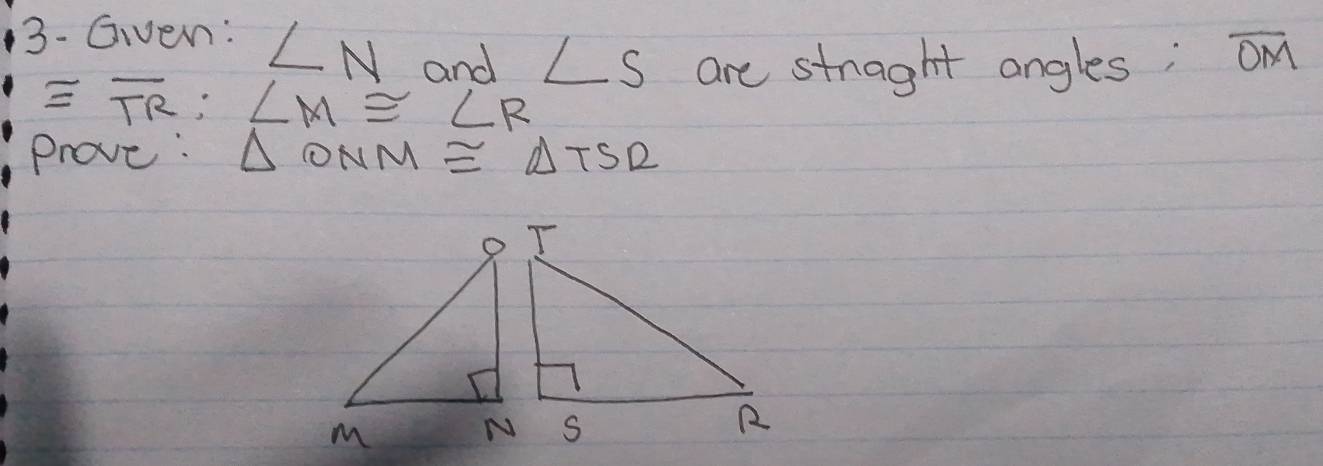 3- Given: ∠N and ∠S are strnaght angles; OM
≅ TR; ∠M ≅ ∠R
Prove: Δ ONM ≅ ΔTSR
O T
M N S R